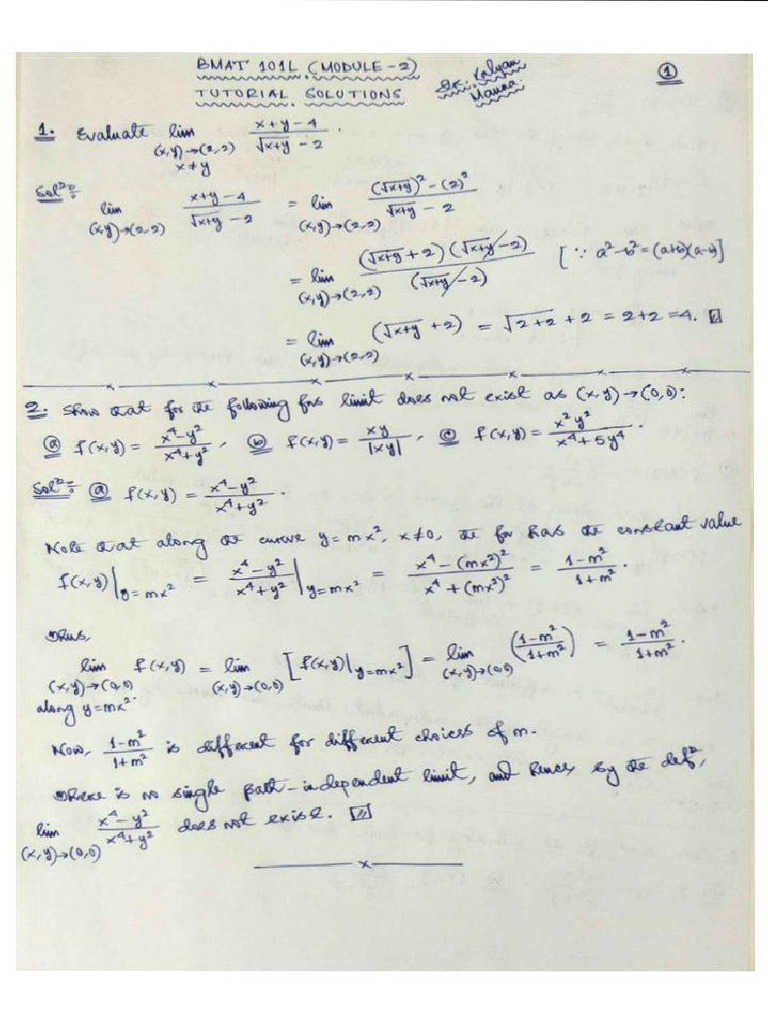 BMAT 101L (MODULE-2)
TUTORIAL SOLUTIONS
Dr. Kalyan Manna
①
1. Evaluate lim_{(x,y)→(2,2), x≠y} (x+y-4)/(√(x+y) - 2).
Solⁿ:
lim_{(x,y)→(2,2)} (x+y-4)/(√(x+y) - 2) = lim_{(x,y)→(2,2)} ((√(x+y))² - (2)²)/(√(x+y) - 2)
= lim_{(x,y)→(2,2)} ((√(x+y) + 2)(√(x+y) - 2))/((√(x+y) - 2)) [∵ a²-b²=(a+b)(a-b)]
= lim_{(x,y)→(2,2)} (√(x+y) + 2) = √(2+2) + 2 = 2+2 = 4.
2. Show that for the following fns limit does not exist as (x,y)→(0,0):
ⓐ f(x,y) = (x⁴-y²)/(x⁴+y²), ⓑ f(x,y) = xy/|xy|, ⓒ f(x,y) = x²y²/(x⁴+5y⁴).
Solⁿ: ⓐ f(x,y) = (x⁴-y²)/(x⁴+y²).
Note that along the curve y=mx², x≠0, the fn has the constant value
f(x,y)|_{y=mx²} = (x⁴-y²)/(x⁴+y²)|_{y=mx²} = (x⁴-(mx²)²)/(x⁴+(mx²)²) = (1-m²)/(1+m²).
Thus,
lim_{(x,y)→(0,0) along y=mx²} f(x,y) = lim_{(x,y)→(0,0)} [f(x,y)|_{y=mx²}] = lim_{(x,y)→(0,0)} ((1-m²)/(1+m²)) = (1-m²)/(1+m²).
Now, (1-m²)/(1+m²) is different for different choices of m.
There is no single path-independent limit, and hence by the defⁿ,
lim_{(x,y)→(0,0)} (x⁴-y²)/(x⁴+y²) does not exist.